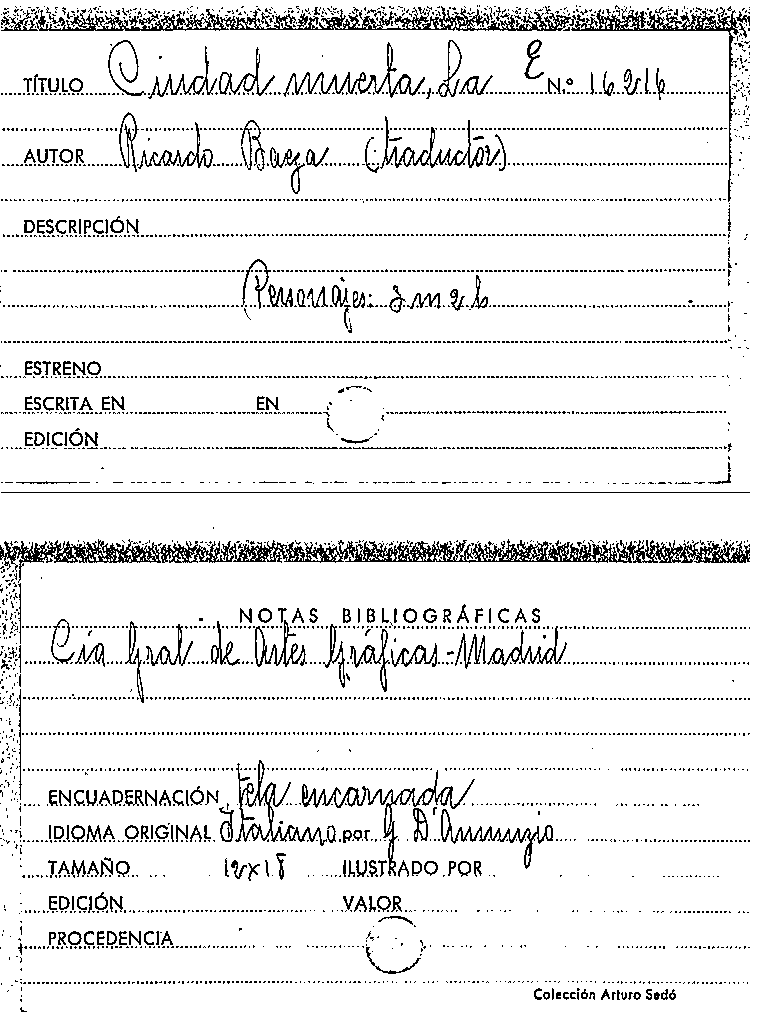 TÍTULO Ciudad muerta, La E N.º 16216
AUTOR Ricardo Baeza (traductor)
DESCRIPCIÓN
Personajes: 3 m 2 h
ESTRENO
ESCRITA EN EN
EDICIÓN
NOTAS BIBLIOGRÁFICAS
Cía Gral de Artes Gráficas - Madrid
ENCUADERNACIÓN tela encarnada
IDIOMA ORIGINAL Italiano por G D'Annunzio
TAMAÑO 12x18 ILUSTRADO POR
EDICIÓN VALOR
PROCEDENCIA
Colección Arturo Sedó